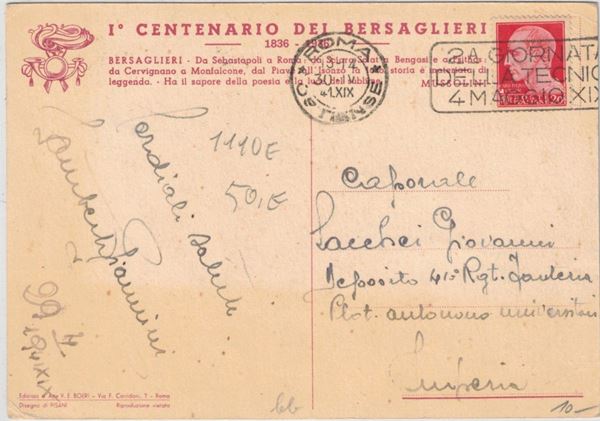 I° CENTENARIO DEI BERSAGLIERI
1836 - 1936
BERSAGLIERI - Da Sebastopoli a Roma: da Sciara Sciat a Bengasi e a
da Cervignano a Monfalcone, dal Piave all'Isonzo la storia è materiata di
leggenda. - Ha il sapore della poesia e la
MUSSOLINI
ROMA
OSTIENSE
13-14
30 IV
41.XIX
2A GIORNATA
DELLA TECNICA
4 MAGGIO XIX
1110E
50,E
Cordiali saluti
Lamberto Giannini
29 4
1941 XIX
Caporale
Sacchei Giovanni
Deposito 41° Rgt. Fanteria
Plot. autonomo universitari
Imperia
Edizioni d'Arte V. E. BOERI - Via F. Corridoni, 7 - Roma
Disegno di PISANI Riproduzione vietata
bb
10-